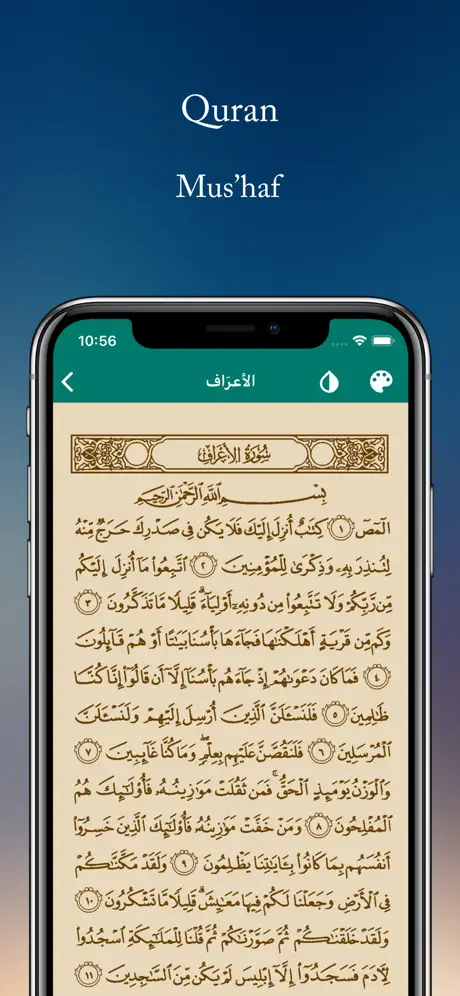 Quran
Mus'haf
10:56
الأعرَاف
سُورَةُ الأَعْرَافِ
بِسْمِ اللَّهِ الرَّحْمَٰنِ الرَّحِيمِ
الٓمٓصٓ ١ كِتَٰبٌ أُنزِلَ إِلَيْكَ فَلَا يَكُن فِي صَدْرِكَ حَرَجٌ مِّنْهُ
لِتُنذِرَ بِهِۦ وَذِكْرَىٰ لِلْمُؤْمِنِينَ ٢ ٱتَّبِعُوا۟ مَآ أُنزِلَ إِلَيْكُم
مِّن رَّبِّكُمْ وَلَا تَتَّبِعُوا۟ مِن دُونِهِۦٓ أَوْلِيَآءَ ۗ قَلِيلًا مَّا تَذَكَّرُونَ ٣
وَكَم مِّن قَرْيَةٍ أَهْلَكْنَٰهَا فَجَآءَهَا بَأْسُنَا بَيَٰتًا أَوْ هُمْ قَآئِلُونَ
٤ فَمَا كَانَ دَعْوَىٰهُمْ إِذْ جَآءَهُم بَأْسُنَآ إِلَّآ أَن قَالُوٓا۟ إِنَّا كُنَّا
ظَٰلِمِينَ ٥ فَلَنَسْـَٔلَنَّ ٱلَّذِينَ أُرْسِلَ إِلَيْهِمْ وَلَنَسْـَٔلَنَّ
ٱلْمُرْسَلِينَ ٦ فَلَنَقُصَّنَّ عَلَيْهِم بِعِلْمٍ ۖ وَمَا كُنَّا غَآئِبِينَ ٧
وَٱلْوَزْنُ يَوْمَئِذٍ ٱلْحَقُّ ۚ فَمَن ثَقُلَتْ مَوَٰزِينُهُۥ فَأُو۟لَٰٓئِكَ هُمُ
ٱلْمُفْلِحُونَ ٨ وَمَنْ خَفَّتْ مَوَٰزِينُهُۥ فَأُو۟لَٰٓئِكَ ٱلَّذِينَ خَسِرُوٓا۟
أَنفُسَهُم بِمَا كَانُوا۟ بِـَٔايَٰتِنَا يَظْلِمُونَ ٩ وَلَقَدْ مَكَّنَّٰكُمْ
فِي ٱلْأَرْضِ وَجَعَلْنَا لَكُمْ فِيهَا مَعَٰيِشَ ۗ قَلِيلًا مَّا تَشْكُرُونَ ١٠
وَلَقَدْ خَلَقْنَٰكُمْ ثُمَّ صَوَّرْنَٰكُمْ ثُمَّ قُلْنَا لِلْمَلَٰٓئِكَةِ ٱسْجُدُوا۟
لِـَٔادَمَ فَسَجَدُوٓا۟ إِلَّآ إِبْلِيسَ لَمْ يَكُن مِّنَ ٱلسَّٰجِدِينَ ١١